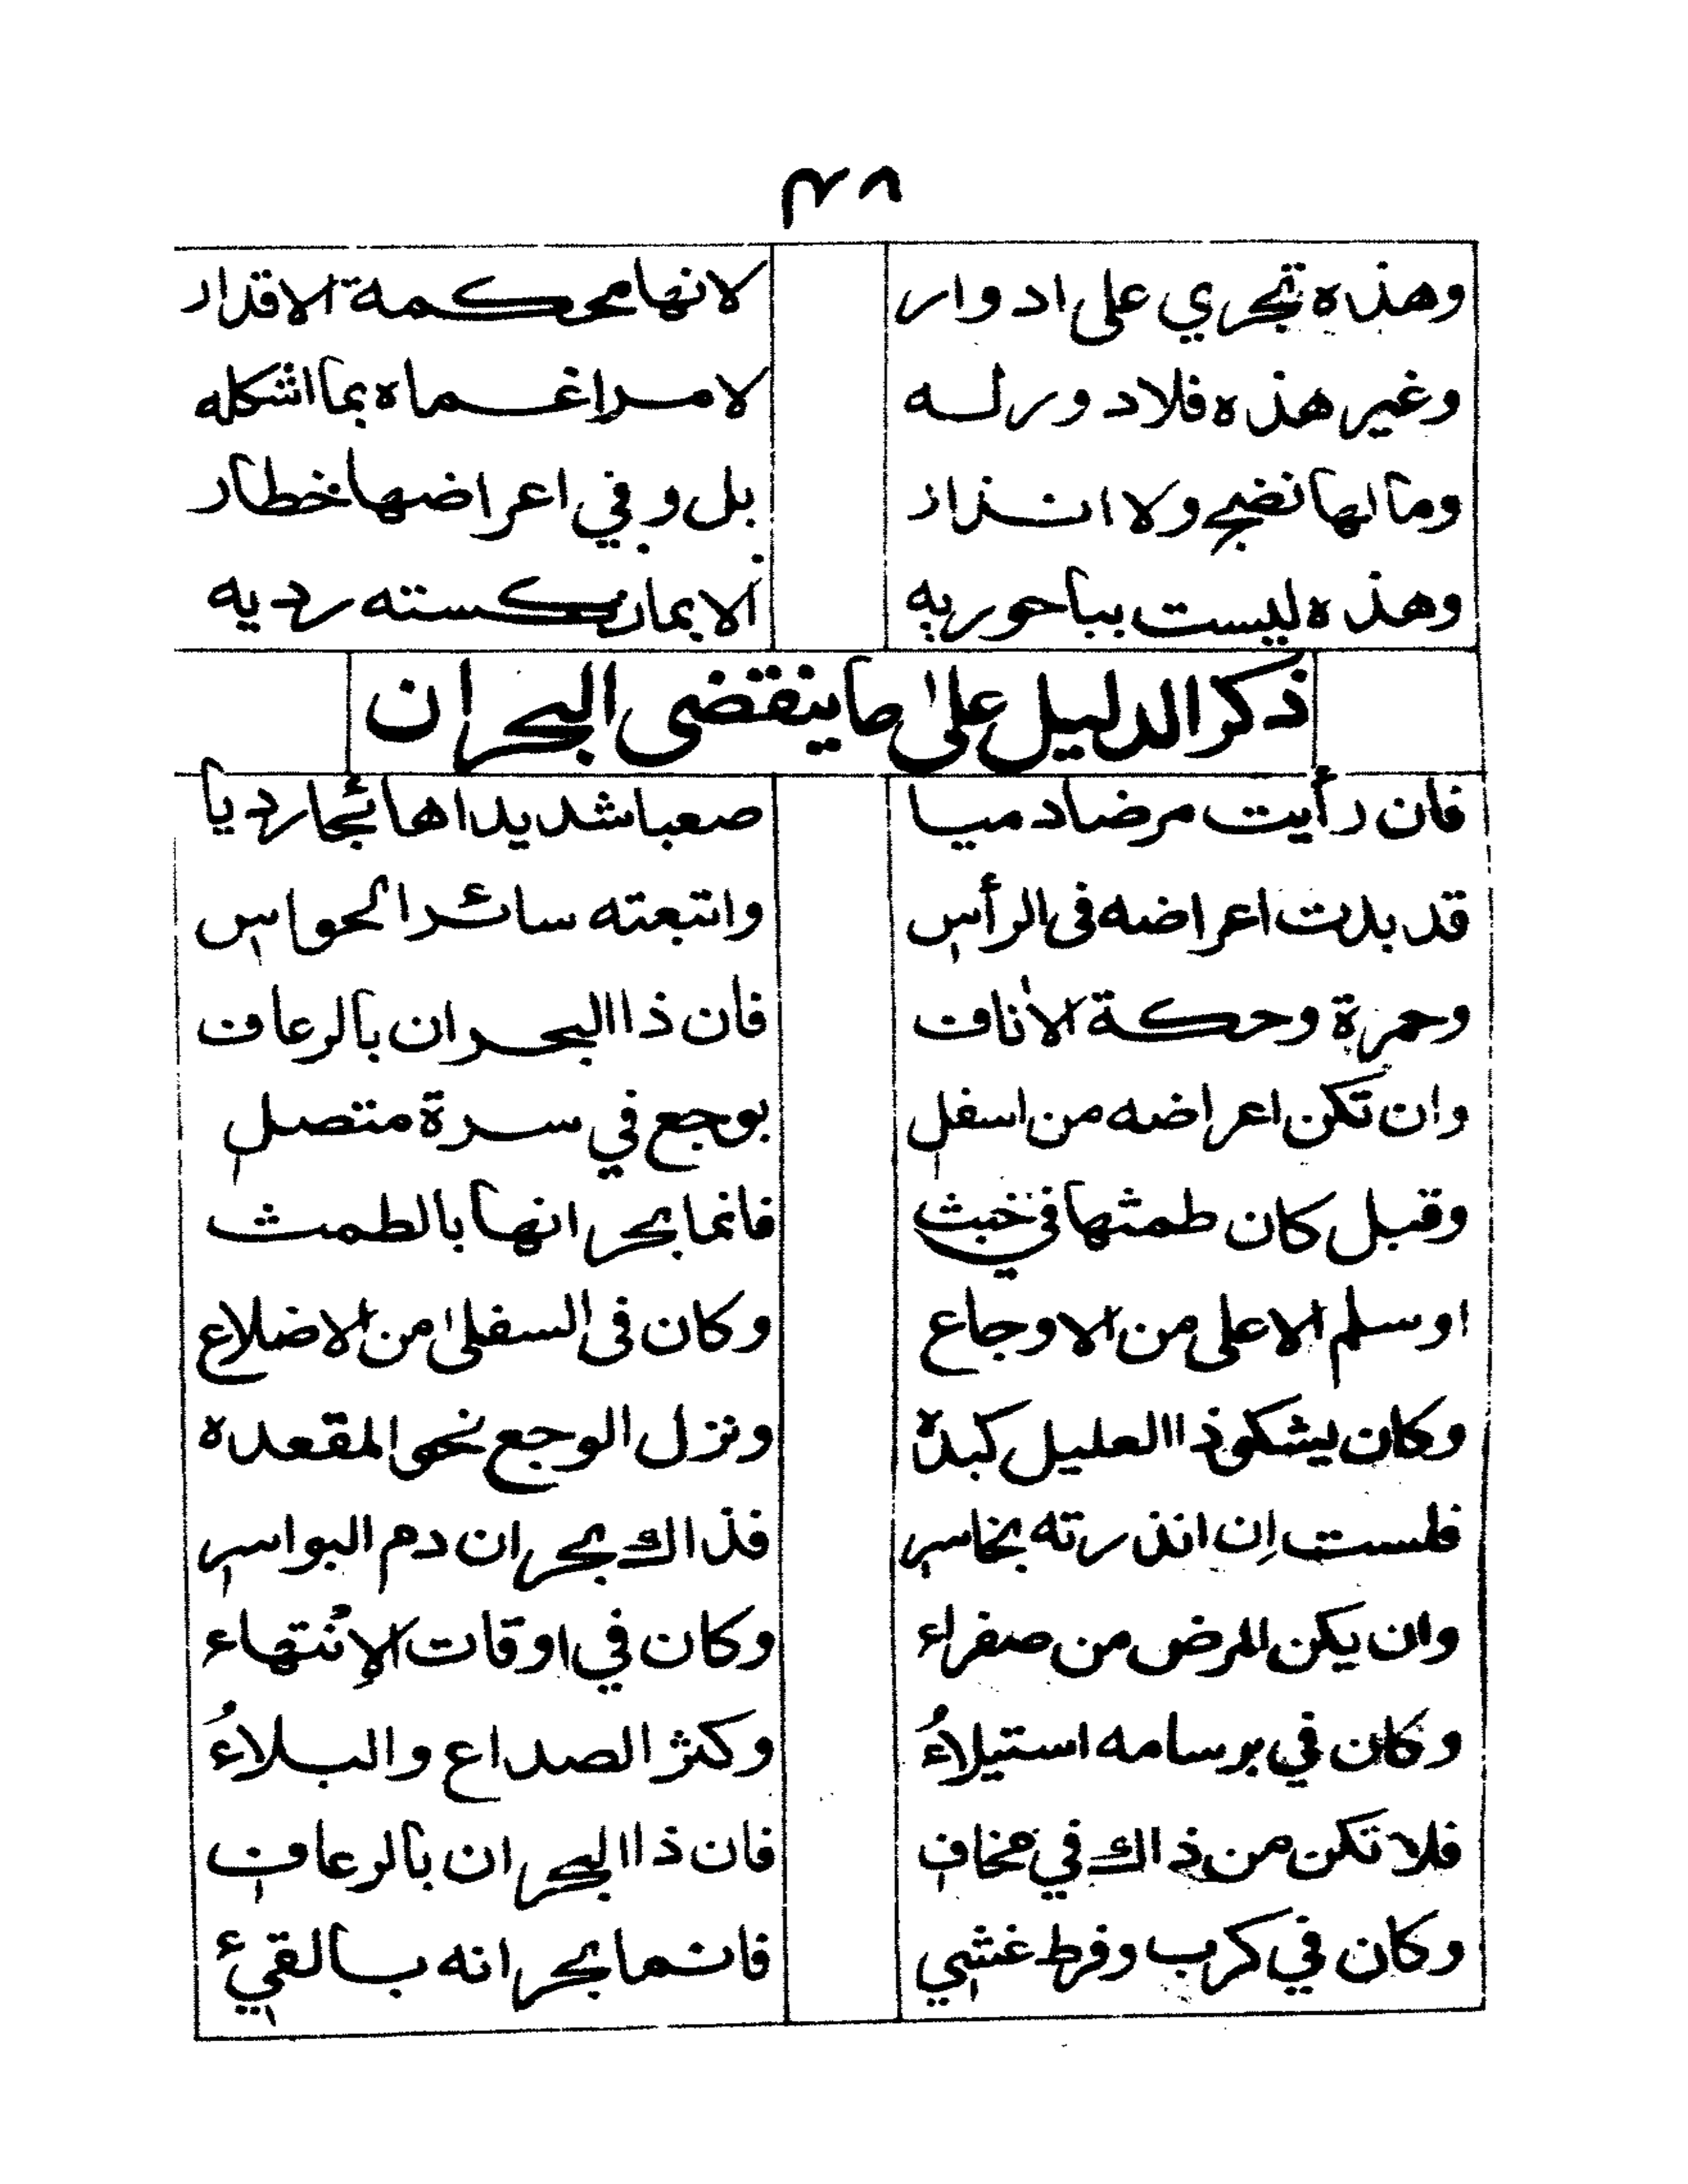 ٣٨
وهذه تجري على ادوار لانها محكمة الاقدار
وغير هذه فلادور له لامر اغماه بما اشكله
وما لها نضج ولا انذار بل و في اعراضها خطار
وهذه ليست بباحوريه الا بما نكسته رديه
ذكر الدليل على ما ينقضى البحران
فان رأيت مرضا دميا صعبا شديدا هائجا رديا
قد بدت اعراضه فى الرأس واتبعته سائر الحواس
وحمرة وحكة الاناف فأن ذا البحران بالرعاف
وان تكن اعراضه من اسفل بوجع في سرة متصل
وقبل كان طمثها في خبث فانما بحرانها بالطمث
او سلم الاعلى من الاوجاع وكان فى السفلى من الاضلاع
وكان يشكو ذا العليل كبده ونزل الوجع نحو المقعده
فلست إن انذرته بخاسر فذاك بحران دم البواسر
وان يكن المرض من صفراء وكان في اوقات الإنتهاء
وكان في برسامه استيلاءُ وكثر الصداع والبلاءُ
فلا تكن من ذاك في مخاف فان ذا البحران بالرعاف
وكان في كرب وفرط غشي فانما بحرانه بالقيء